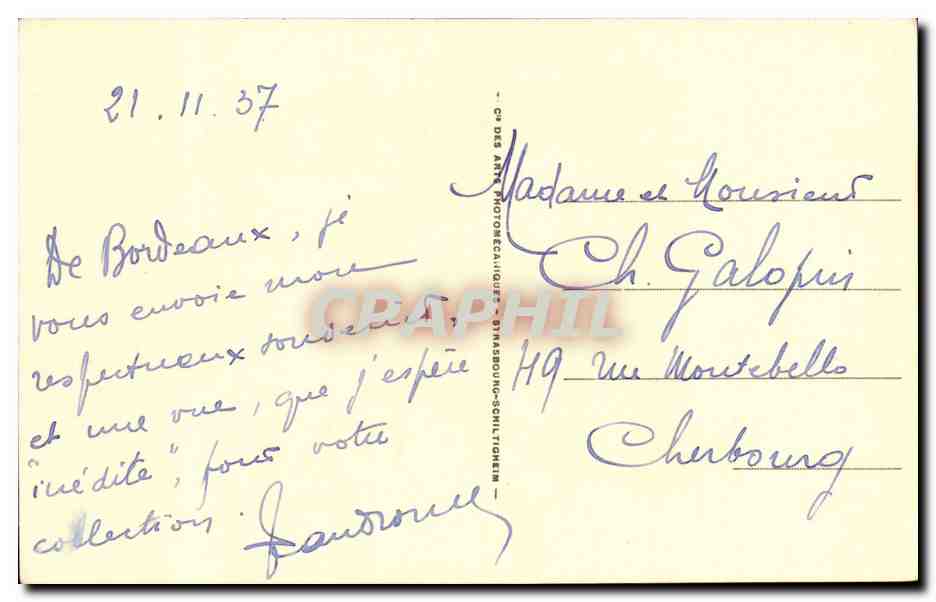 21.11.37
De Bordeaux, je
vous envoie mon
respectueux souvenir,
et une vue, que j'espère
"inédite", pour votre
collection.
Cie DES ARTS PHOTOMÉCANIQUES - STRASBOURG-SCHILTIGHEIM
Madame et Monsieur
Ch. Galopin
49 rue Montebello
Cherbourg
CPAPHIL